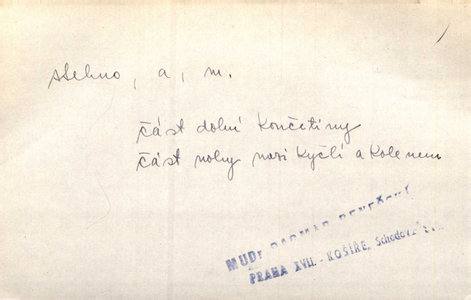 stehno, a, m.
část dolní končetiny
část nohy mezi kyčlí a kolenem
MUDr. DAGMAR
PRAHA XVII. - KOŠÍŘE, Schodová